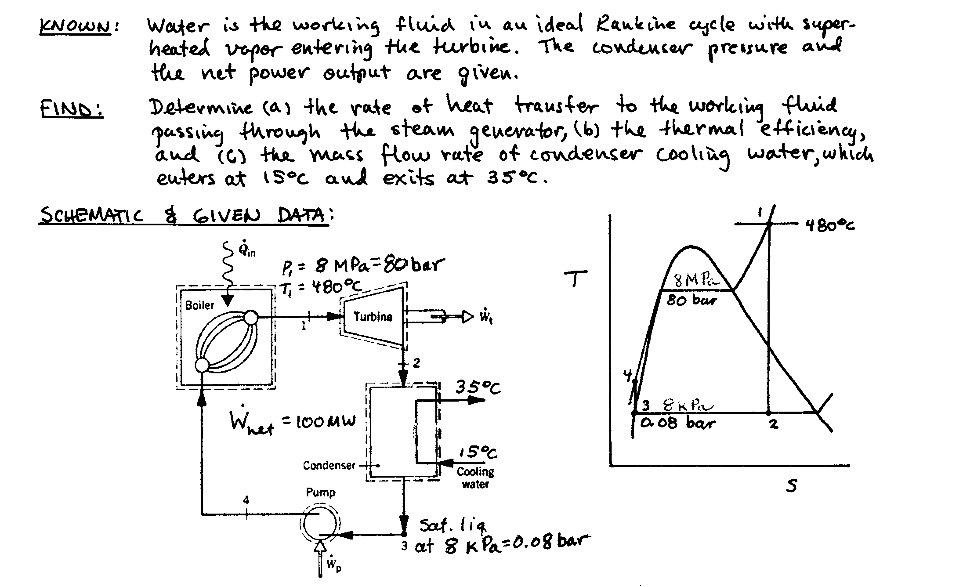 KNOWN: Water is the working fluid in an ideal Rankine cycle with super-
heated vapor entering the turbine. The condenser pressure and
the net power output are given.
FIND: Determine (a) the rate of heat transfer to the working fluid
passing through the steam generator, (b) the thermal efficiency,
and (c) the mass flow rate of condenser cooling water, which
enters at 15°C and exits at 35°C.
SCHEMATIC & GIVEN DATA:
Q̇in
P₁ = 8 MPa = 80 bar
T₁ = 480°C
Boiler
1
Turbine
Ẇt
2
35°C
Ẇnet = 100 MW
15°C
Cooling
water
Condenser
Pump
4
Sat. liq
3 at 8 kPa = 0.08 bar
Ẇp
T
1
480°C
8 MPa
80 bar
4
3 8 kPa
0.08 bar
2
S